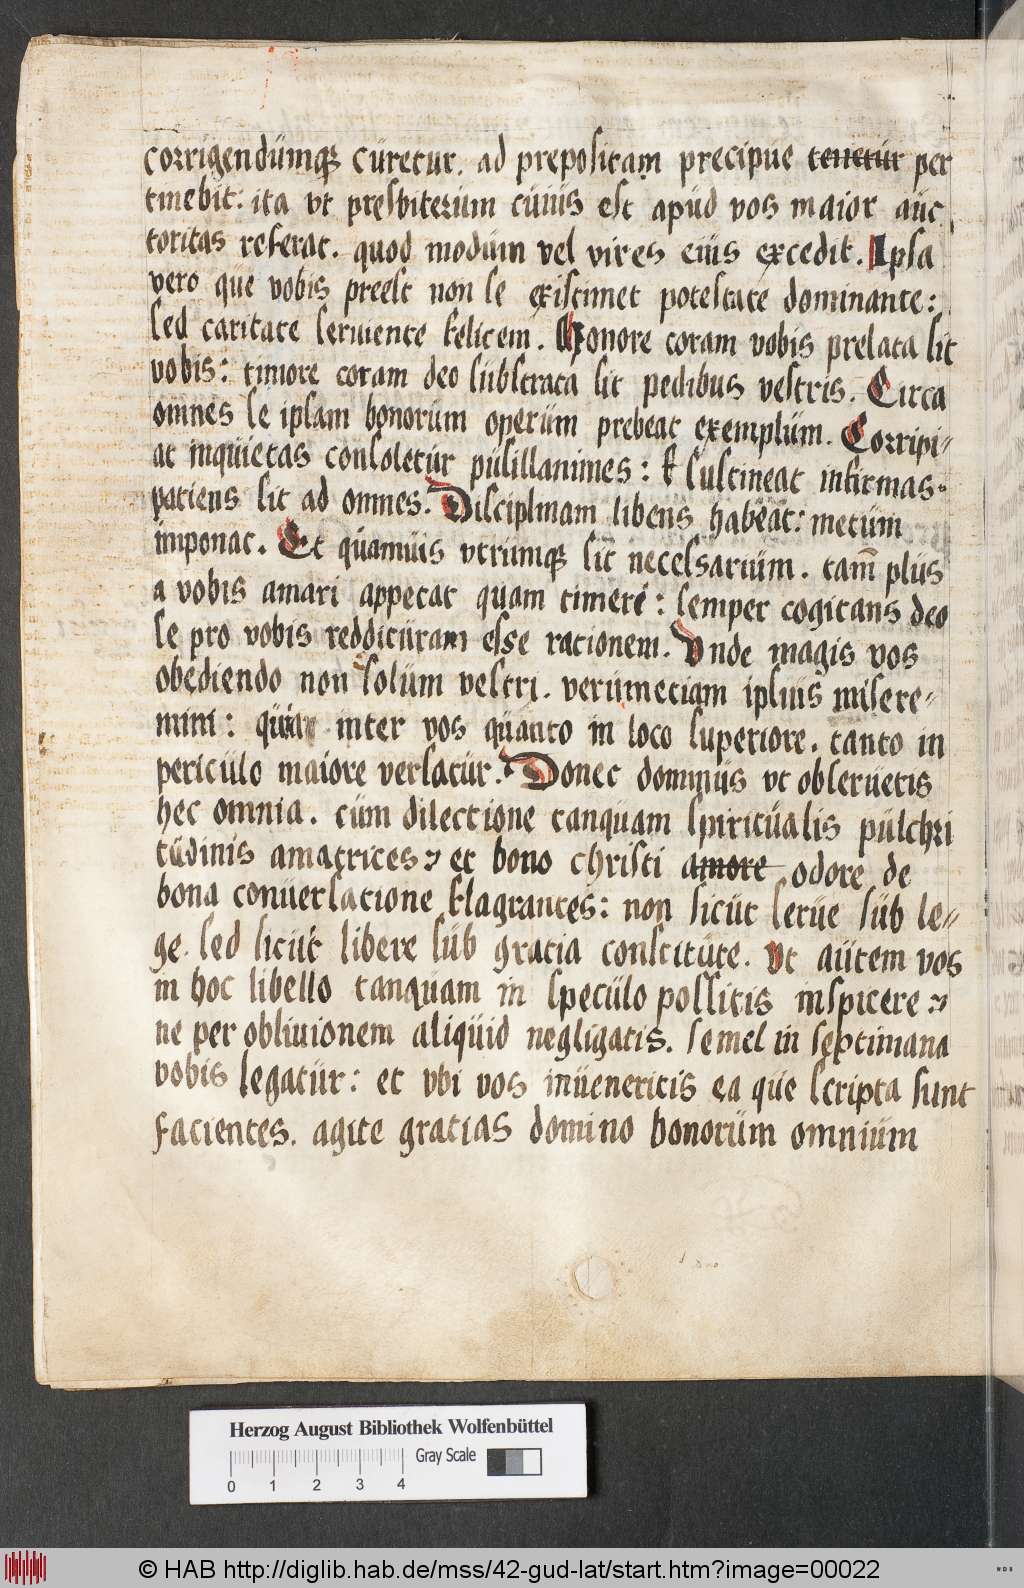 corrigendumque curetur. ad prepositam precipue tenetur per
tinebit: ita vt presbiterum cuius est apud vos maior auc
toritas referat. quod modum vel vires eius excedit. Ipsa
vero que vobis preest non se existimet potestate dominante:
sed caritate seruiente felicem. Honore coram vobis prelata sit
vobis: timore coram deo substrata sit pedibus vestris. Circa
omnes se ipsam bonorum operum prebeat exemplum. Corripi-
at inquietas consoletur pusillanimes: et sustineat infirmas.
patiens sit ad omnes. Disciplinam libens habeat: metum
imponat. Et quamuis vtrumque sit necessarium. tamen plus
a vobis amari appetat quam timeri: semper cogitans deo
se pro vobis reddituram esse rationem. Unde magis vos
obediendo non solum vestri. verumetiam ipsius misere-
mini: quia inter vos quanto in loco superiore. tanto in
periculo maiore versatur. Donet dominus vt obseruetis
hec omnia. cum dilectione tanquam spiritualis pulchri
tudinis amatrices: et bono christi amore odore de
bona conuersatione flagrantes: non sicut serue sub le-
ge. sed sicut libere sub gratia constitute. Ut autem vos
in hoc libello tanquam in speculo possitis inspicere:
ne per obliuionem aliquid negligatis. semel in septimana
vobis legatur: et vbi vos inueneritis ea que scripta sunt
facientes. agite gratias domino bonorum omnium
Herzog August Bibliothek Wolfenbüttel
Gray Scale
0 1 2 3 4
© HAB http://diglib.hab.de/mss/42-gud-lat/start.htm?image=00022